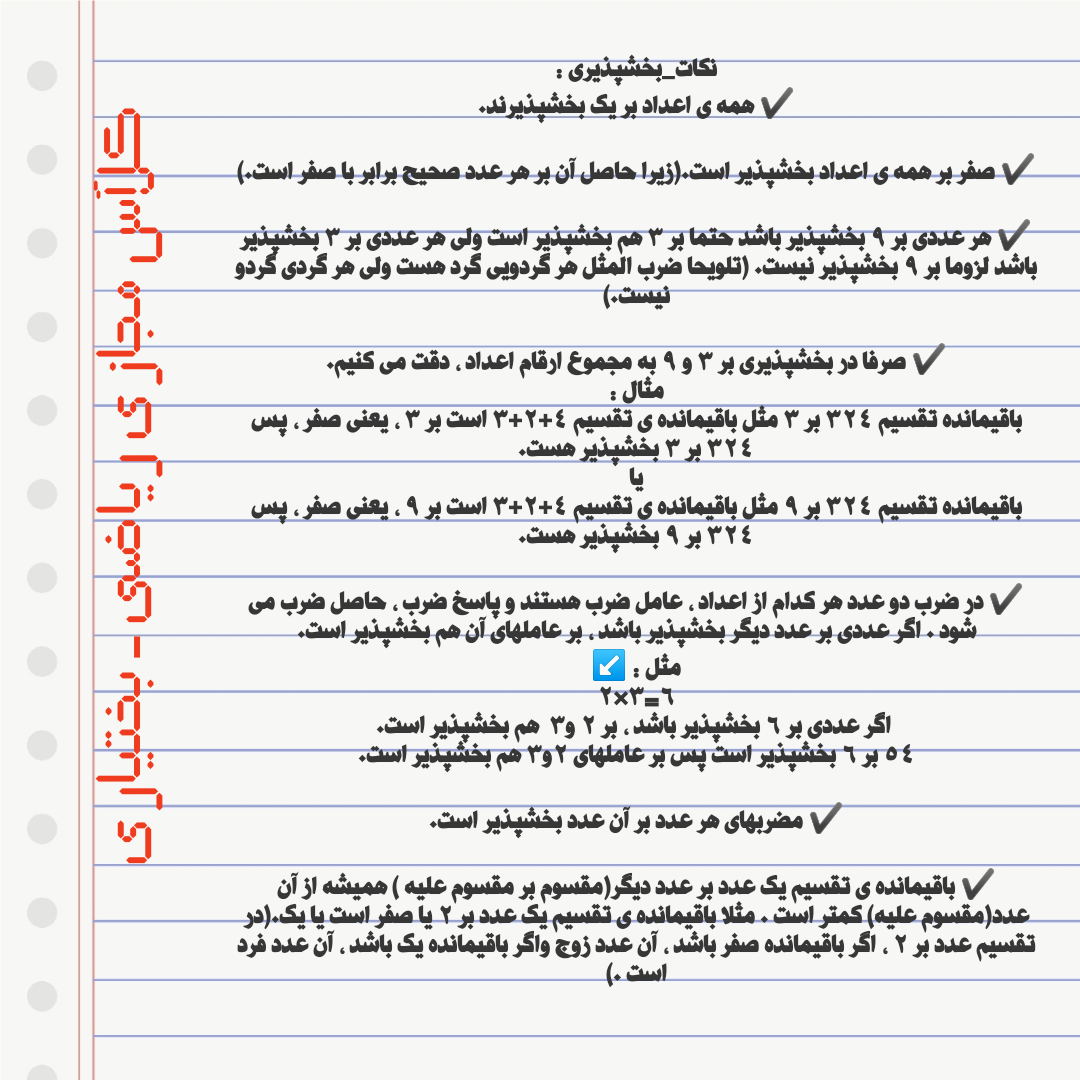 نکات_بخشپذیری :
✔ همه ی اعداد بر یک بخشپذیرند.
✔ صفر بر همه ی اعداد بخشپذیر است.(زیرا حاصل آن بر هر عدد صحیح برابر با صفر است.)
✔ هر عددی بر ۹ بخشپذیر باشد حتما بر ۳ هم بخشپذیر است ولی هر عددی بر ۳ بخشپذیر
باشد لزوما بر ۹ بخشپذیر نیست. (تلویحا ضرب المثل هر گردویی گرد هست ولی هر گردی گردو
نیست.)
✔ صرفا در بخشپذیری بر ۳ و ۹ به مجموع ارقام اعداد ، دقت می کنیم.
مثال :
باقیمانده تقسیم ۳۲٤ بر ۳ مثل باقیمانده ی تقسیم ٤+۲+۳ است بر ۳ ، یعنی صفر ، پس
۳۲٤ بر ۳ بخشپذیر هست.
یا
باقیمانده تقسیم ۳۲٤ بر ۹ مثل باقیمانده ی تقسیم ٤+۲+۳ است بر ۹ ، یعنی صفر ، پس
۳۲٤ بر ۹ بخشپذیر هست.
✔ در ضرب دو عدد هر کدام از اعداد ، عامل ضرب هستند و پاسخ ضرب ، حاصل ضرب می
شود . اگر عددی بر عدد دیگر بخشپذیر باشد ، بر عاملهای آن هم بخشپذیر است.
مثل : ↙
٦=۳×۲
اگر عددی بر ٦ بخشپذیر باشد ، بر ۲ و۳ هم بخشپذیر است.
٥٤ بر ٦ بخشپذیر است پس بر عاملهای ۲و۳ هم بخشپذیر است.
✔ مضربهای هر عدد بر آن عدد بخشپذیر است.
✔ باقیمانده ی تقسیم یک عدد بر عدد دیگر(مقسوم بر مقسوم علیه ) همیشه از آن
عدد(مقسوم علیه) کمتر است . مثلا باقیمانده ی تقسیم یک عدد بر ۲ یا صفر است یا یک.(در
تقسیم عدد بر ۲ ، اگر باقیمانده صفر باشد ، آن عدد زوج واگر باقیمانده یک باشد ، آن عدد فرد
است .)
کلاس مجازی ریاضی - بختیاری